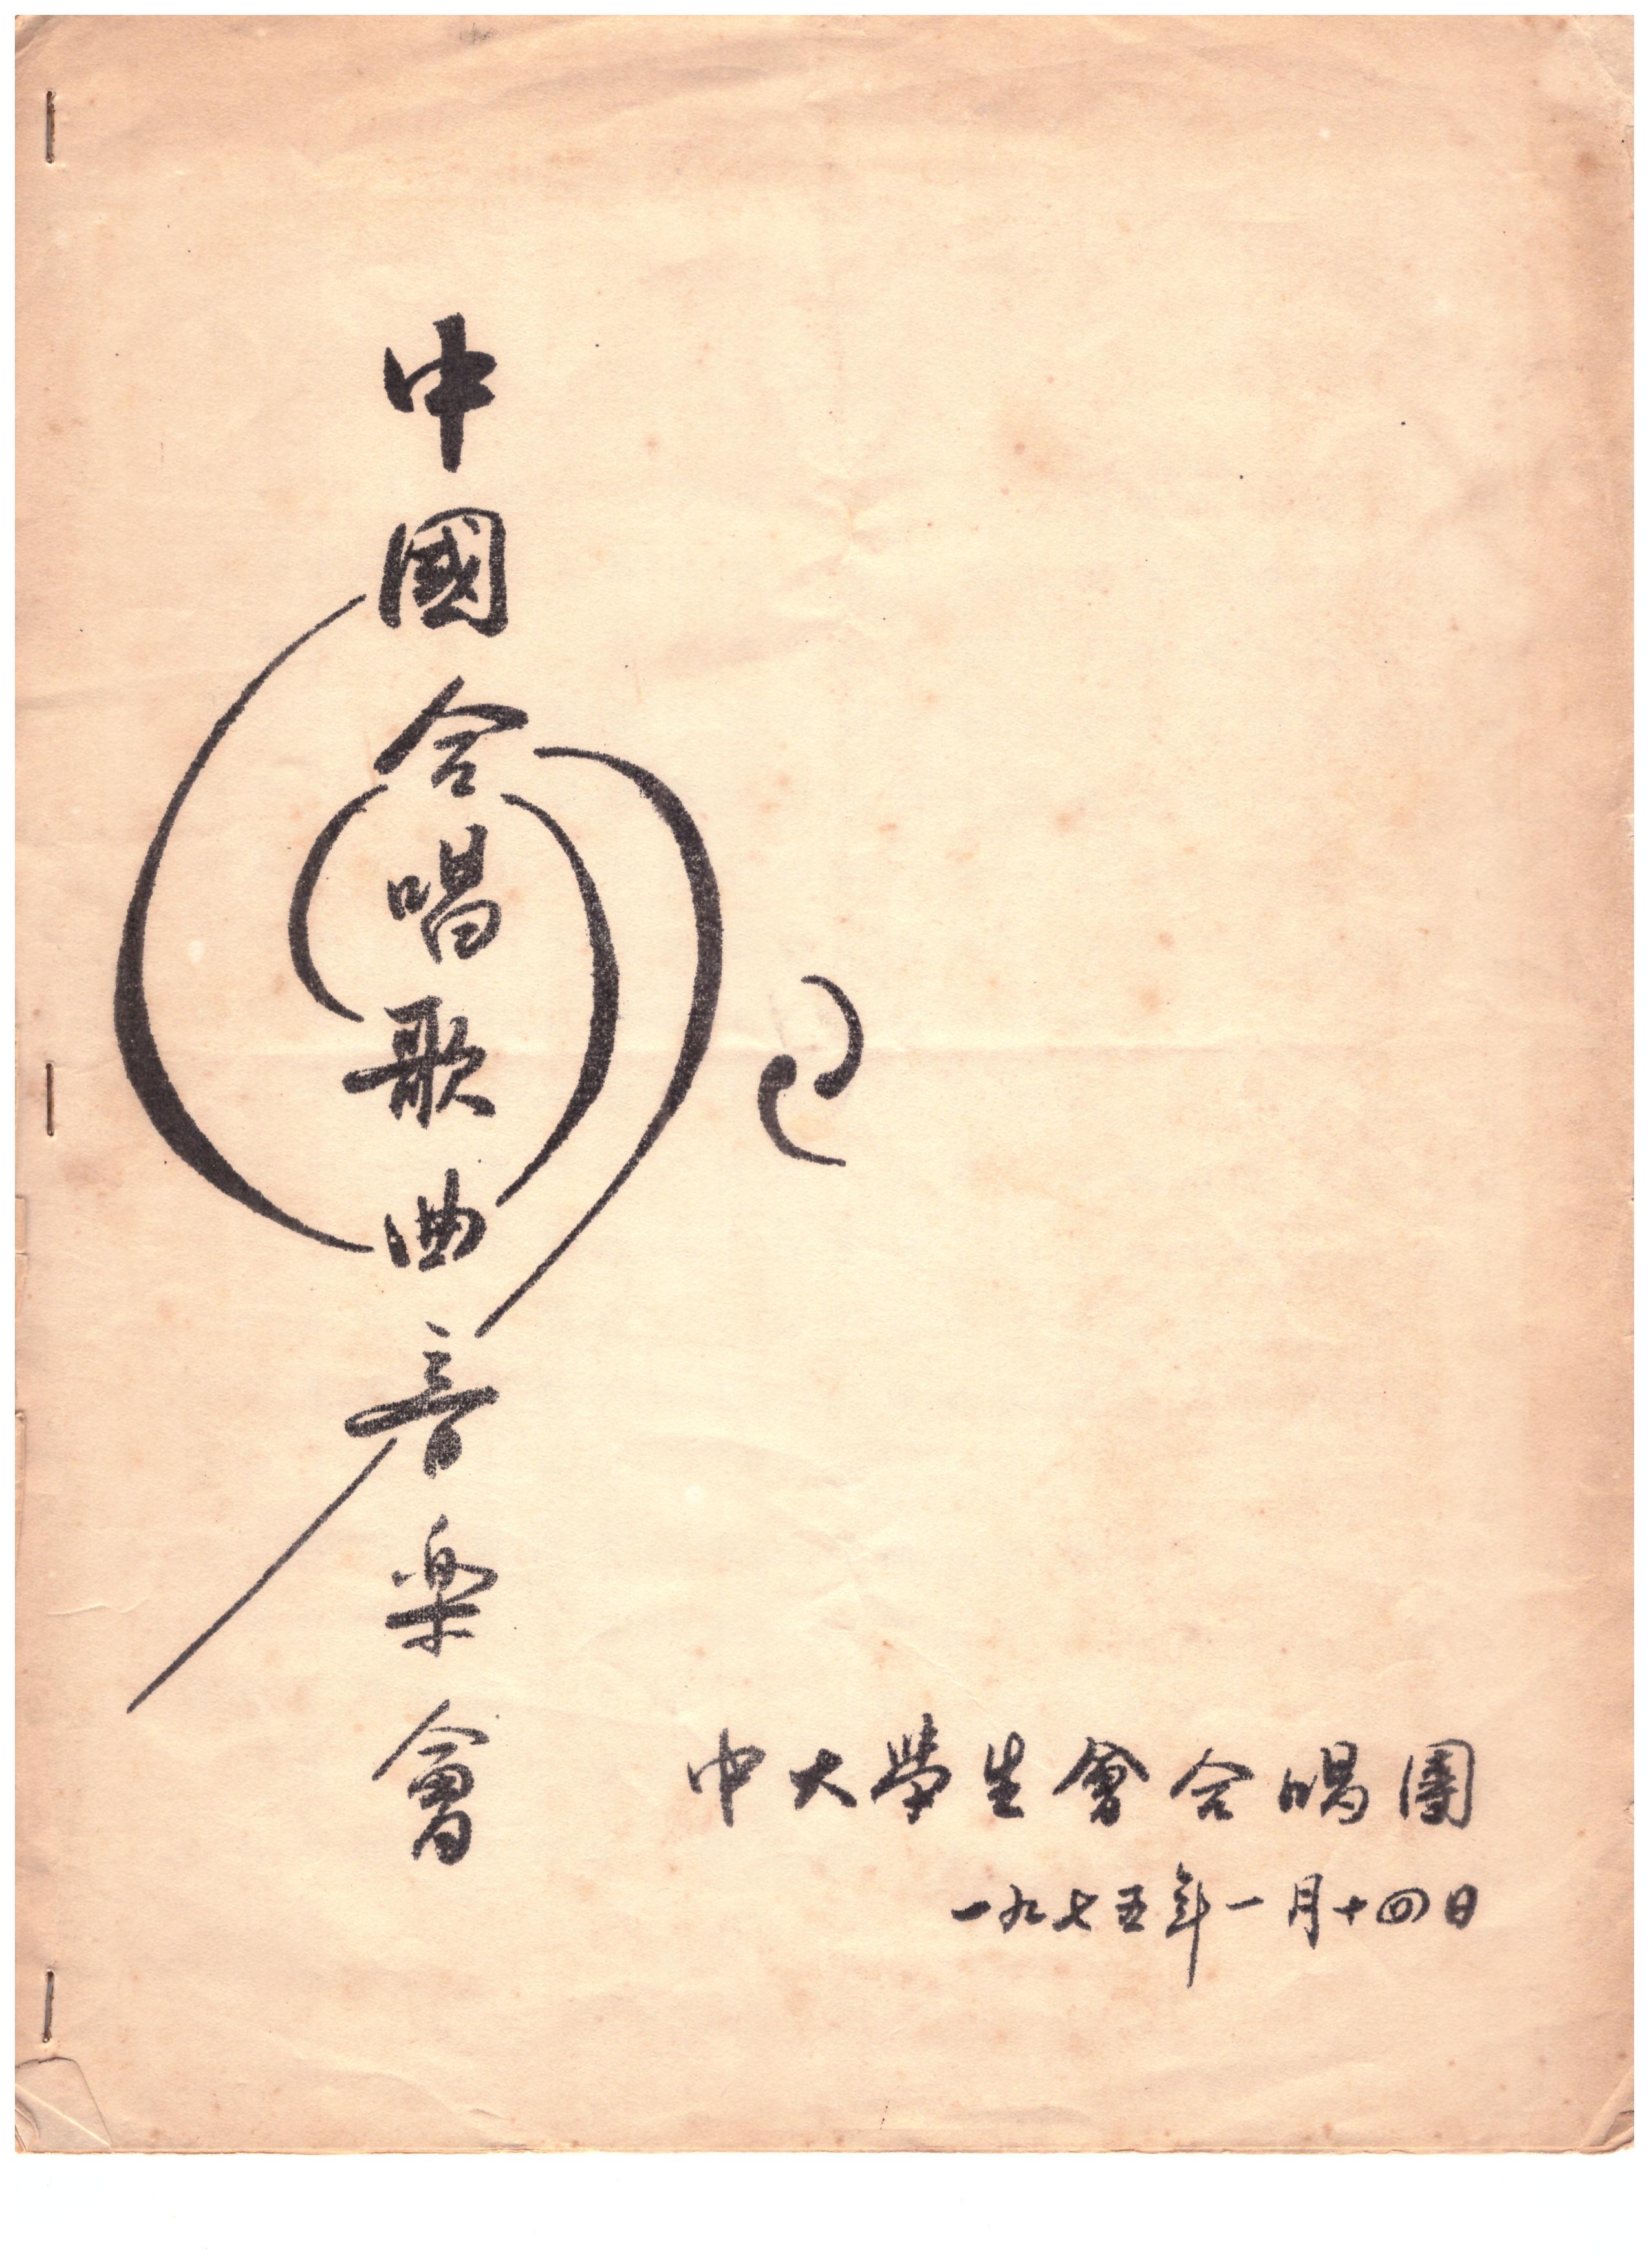 中國合唱歌曲音楽會
中大學生會合唱團
一九七五年一月十四日